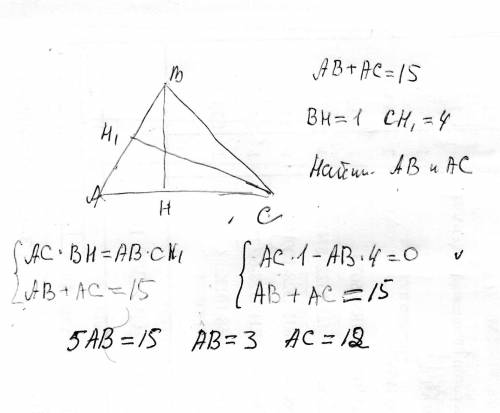 B
AB+AC=15
H₁
BH=1 CH₁=4
Найти AB и AC
A
H
C
{AC·BH=AB·CH₁
AB+AC=15
{AC·1-AB·4=0
AB+AC=15
5AB=15 AB=3 AC=12